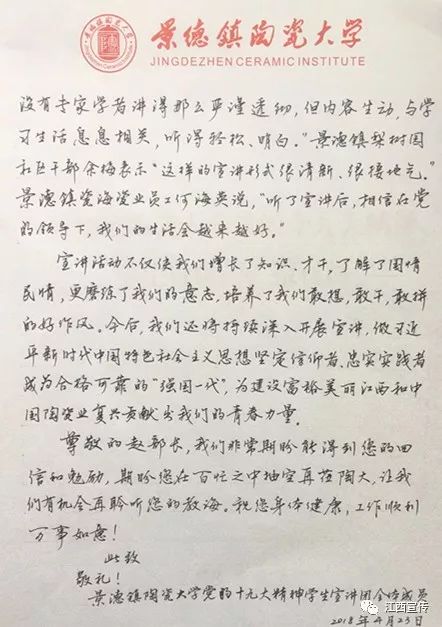 景德镇陶瓷大学
JINGDEZHEN CERAMIC INSTITUTE
没有专家学者讲得那么严谨透彻，但内容生动，与学
习生活息息相关，听得轻松、明白。”景德镇梨树园
社区干部余梅表示“这样的宣讲形式很清新、很接地气。”
景德镇瓷海瓷业员工何海英说，“听了宣讲后，相信在党
的领导下，我们的生活会越来越好。”
宣讲活动不仅使我们增长了知识、才干，了解了国情
民情，更磨练了我们的意志，培养了我们敢想，敢干，敢拼
的好作风。今后，我们还将持续深入开展宣讲，做习近
平新时代中国特色社会主义思想坚定信仰者、忠实实践者
成为合格可靠的“强国一代”，为建设富裕美丽江西和中
国陶瓷业复兴贡献出我们的青春力量。
尊敬的赵部长，我们非常期盼能得到您的回
信和勉励，期盼您在百忙之中抽空再莅陶大，让我
们有机会再聆听您的教诲。祝您身体健康，工作顺利
万事如意！
此致
敬礼！
景德镇陶瓷大学党的十九大精神学生宣讲团全体成员
2018年4月23日
江西宣传